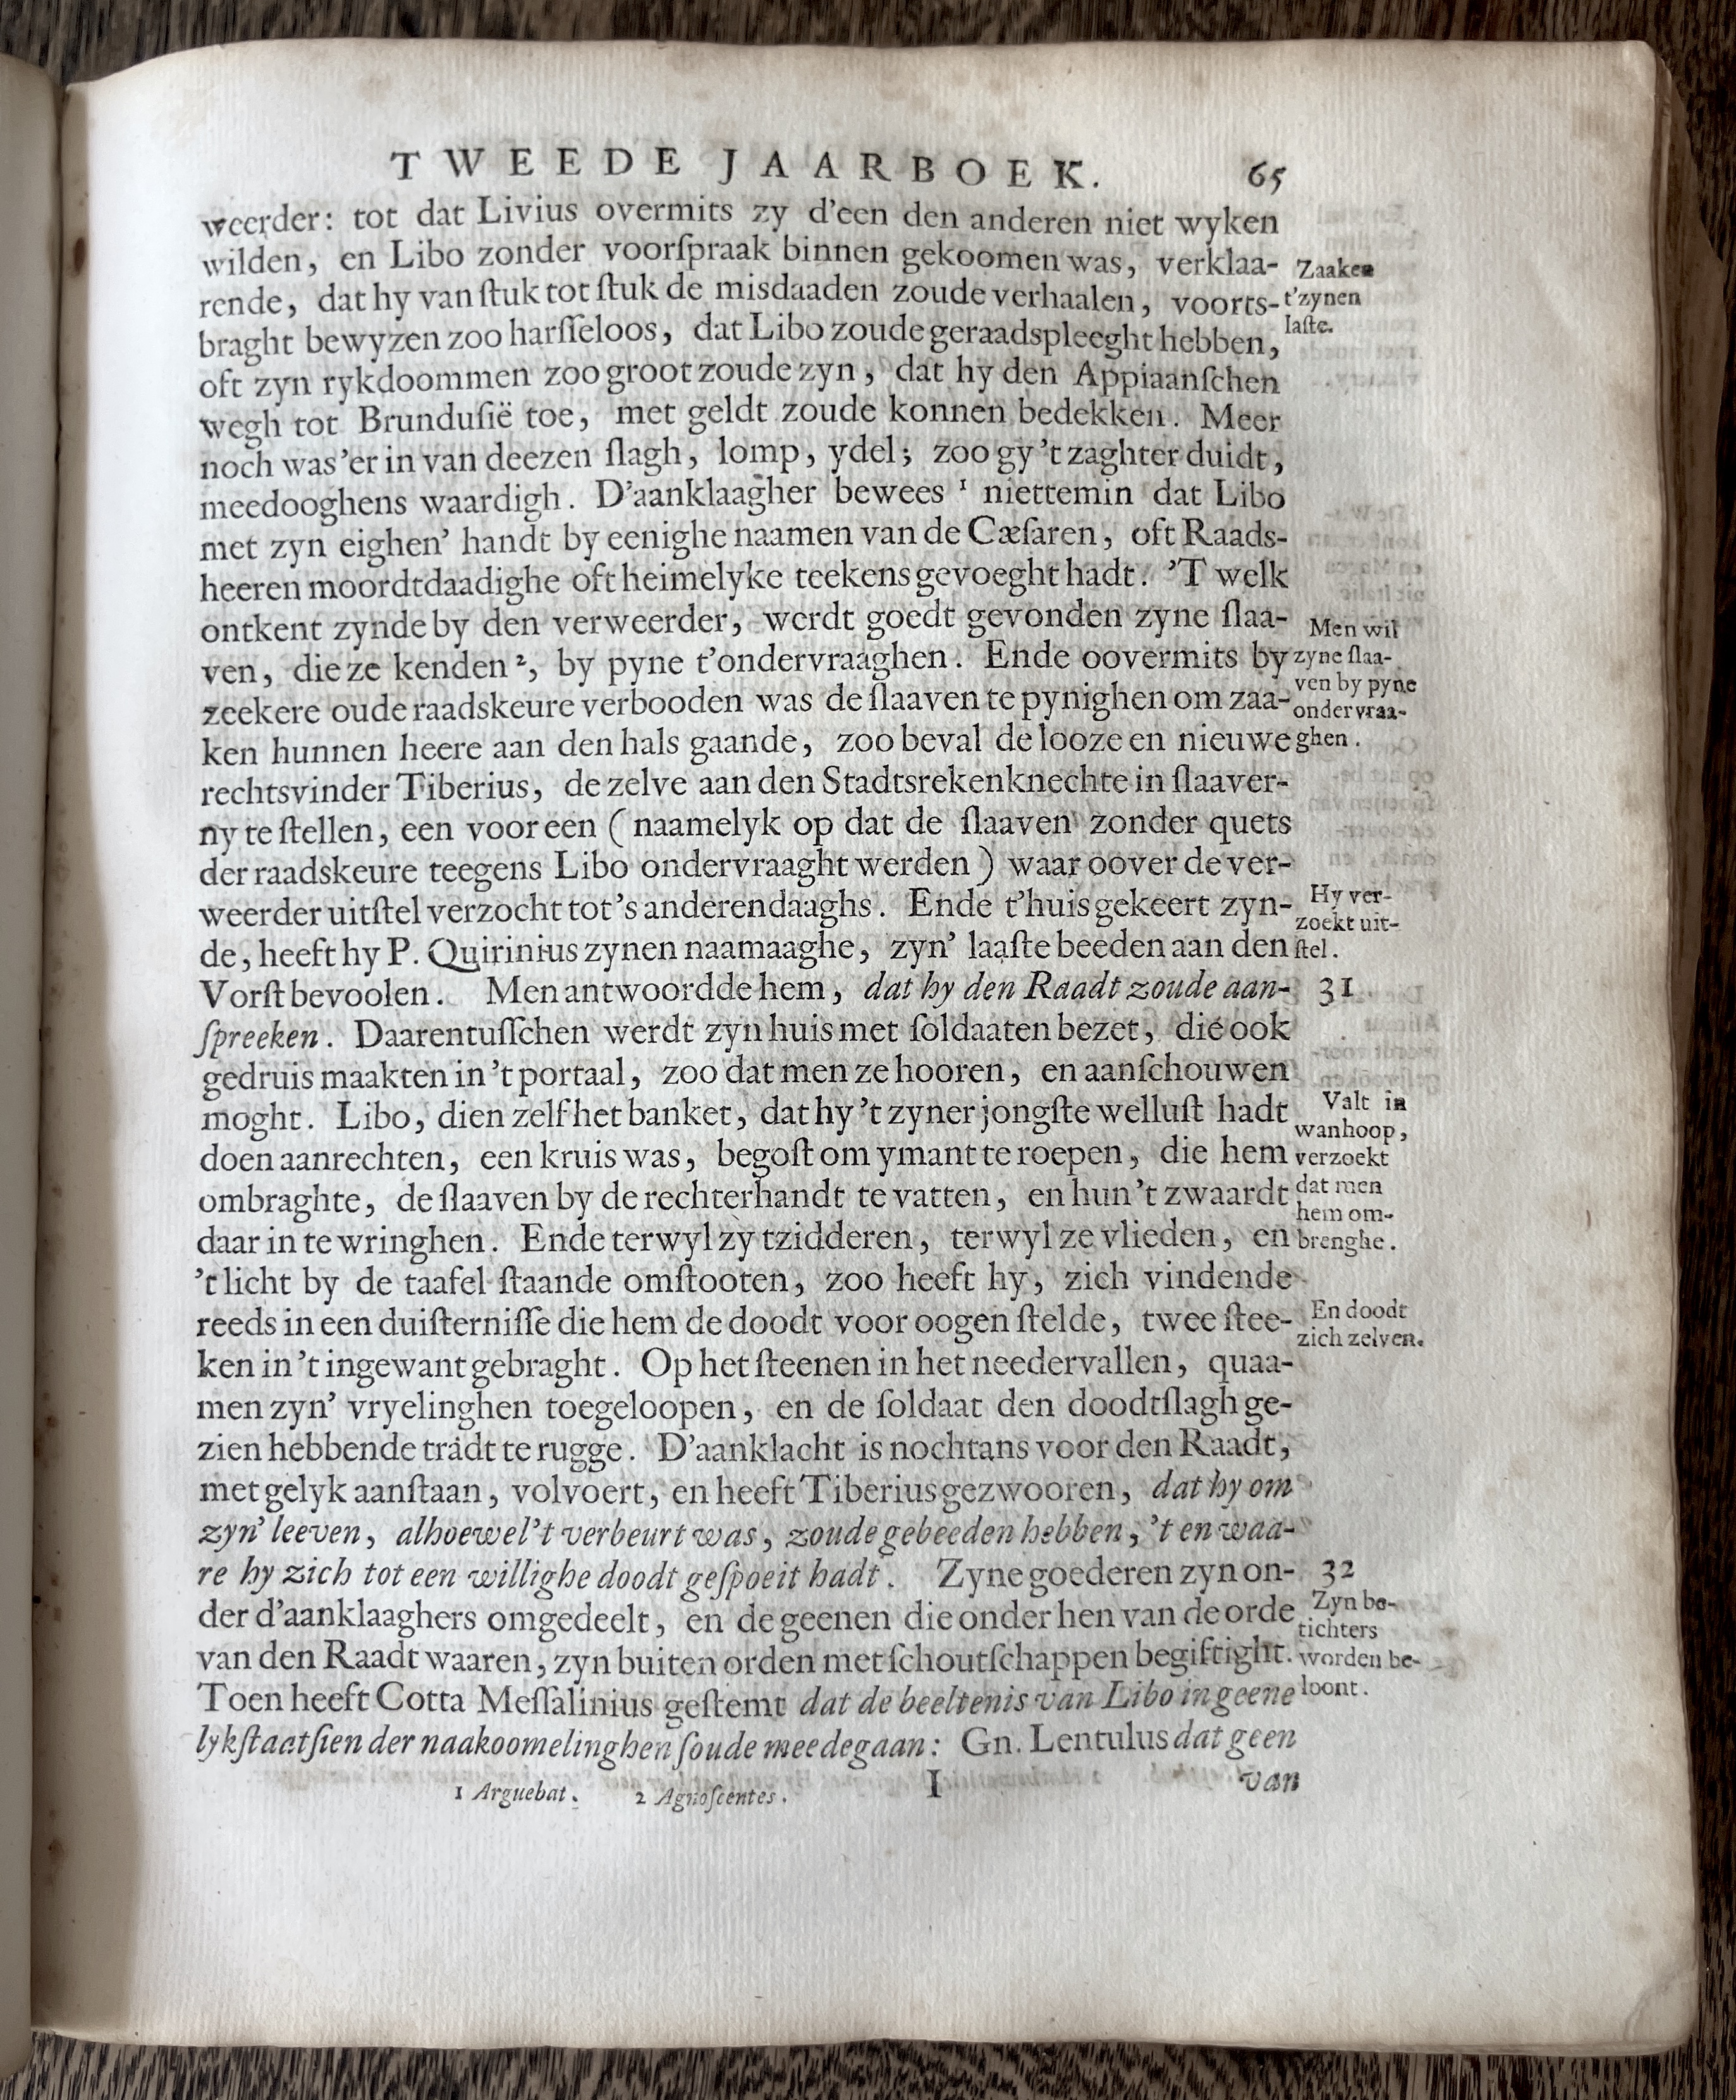 TWEEDE JAARBOEK. 65
weerder: tot dat Livius overmits zy d'een den anderen niet wyken
wilden, en Libo zonder voorſpraak binnen gekoomen was, verklaa-
rende, dat hy van ſtuk tot ſtuk de misdaaden zoude verhaalen, voorts-
braght bewyzen zoo harſſeloos, dat Libo zoude geraadspleeght hebben,
oft zyn rykdoommen zoo groot zoude zyn, dat hy den Appiaanſchen
wegh tot Brunduſië toe, met geldt zoude konnen bedekken. Meer
noch was'er in van deezen ſlagh, lomp, ydel; zoo gy 't zaghter duidt,
meedooghens waardigh. D'aanklaagher bewees ¹ niettemin dat Libo
met zyn eighen' handt by eenighe naamen van de Cæſaren, oft Raads-
heeren moordtdaadighe oft heimelyke teekens gevoeght hadt. 'T welk
ontkent zynde by den verweerder, werdt goedt gevonden zyne ſlaa-
ven, die ze kenden ², by pyne t'ondervraaghen. Ende oovermits by
zeekere oude raadskeure verbooden was de ſlaaven te pynighen om zaa-
ken hunnen heere aan den hals gaande, zoo beval de looze en nieuwe
rechtsvinder Tiberius, de zelve aan den Stadtsrekenknechte in ſlaaver-
ny te ſtellen, een voor een (naamelyk op dat de ſlaaven zonder quets
der raadskeure teegens Libo ondervraaght werden) waar oover de ver-
weerder uitſtel verzocht tot 's anderendaaghs. Ende t'huis gekeert zyn-
de, heeft hy P. Quirinius zynen naamaaghe, zyn' laaſte beeden aan den
Vorſt bevoolen. Men antwoordde hem, dat hy den Raadt zoude aan-
ſpreeken. Daarentuſſchen werdt zyn huis met ſoldaaten bezet, die ook
gedruis maakten in 't portaal, zoo dat men ze hooren, en aanſchouwen
moght. Libo, dien zelf het banket, dat hy 't zyner jongſte welluſt hadt
doen aanrechten, een kruis was, begoſt om ymant te roepen, die hem
ombraghte, de ſlaaven by de rechterhandt te vatten, en hun 't zwaardt
daar in te wringhen. Ende terwyl zy tzidderen, terwyl ze vlieden, en
't licht by de taafel ſtaande omſtooten, zoo heeft hy, zich vindende
reeds in een duiſterniſſe die hem de doodt voor oogen ſtelde, twee ſtee-
ken in 't ingewant gebraght. Op het ſteenen in het needervallen, quaa-
men zyn' vryelinghen toegeloopen, en de ſoldaat den doodtſlagh ge-
zien hebbende trádt te rugge. D'aanklacht is nochtans voor den Raadt,
met gelyk aanſtaan, volvoert, en heeft Tiberius gezwooren, dat hy om
zyn' leeven, alhoewel 't verbeurt was, zoude gebeeden hebben, 't en waa-
re hy zich tot een willighe doodt geſpoeit hadt. Zyne goederen zyn on-
der d'aanklaaghers omgedeelt, en de geenen die onder hen van de orde
van den Raadt waaren, zyn buiten orden met ſchoutſchappen begiftight.
Toen heeft Cotta Meſſalinius geſtemt dat de beeltenis van Libo in geene
lykſtaatſien der naakoomelinghen ſoude meedegaan: Gn. Lentulus dat geen
1 Arguebat. 2 Agnoſcentes. I van
Zaaken
t'zynen
laſte.
Men wil
zyne ſlaa-
ven by pyne
ondervraa-
ghen.
Hy ver-
zoekt uit-
ſtel.
31
Valt in
wanhoop,
verzoekt
dat men
hem om-
brenghe.
En doodt
zich zelven.
32
Zyn be-
tichters
worden be-
loont.